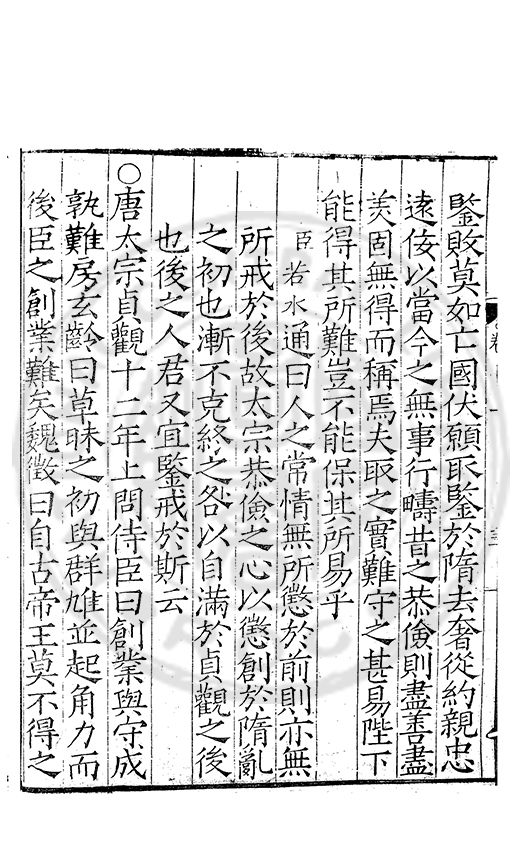 鑒敗莫如亡國伏願取鑒於隋去奢從約親忠
遠佞以當今之無事行疇昔之恭儉則盡善盡
美固無得而稱焉夫取之實難守之甚易陛下
能得其所難豈不能保其所易乎
臣若水通曰人之常情無所懲於前則亦無
所戒於後故太宗恭儉之心以懲創於隋亂
之初也漸不克終之咎以自滿於貞觀之後
也後之人君又宜鑒戒於斯云
○唐太宗貞觀十二年上問侍臣曰創業與守成
孰難房玄齡曰草昧之初與群雄並起角力而
後臣之創業難矣魏徵曰自古帝王莫不得之